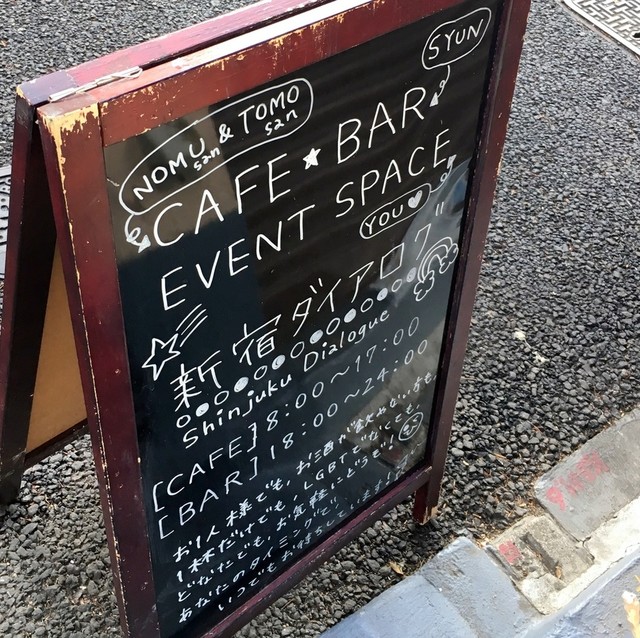 SYUN
NOMU san & TOMO san
CAFE★BAR
EVENT SPACE
YOU♥
新宿ダイアログ
Shinjuku Dialogue
[CAFE] 8:00〜17:00
[BAR] 18:00〜24:00
お1人様でも、お酒が飲めない方も、
1杯だけでも、LGBTでなくても、
どなたでも、お気軽にどうぞ!
あなたのタイミングで、
いつでもお待ちしています